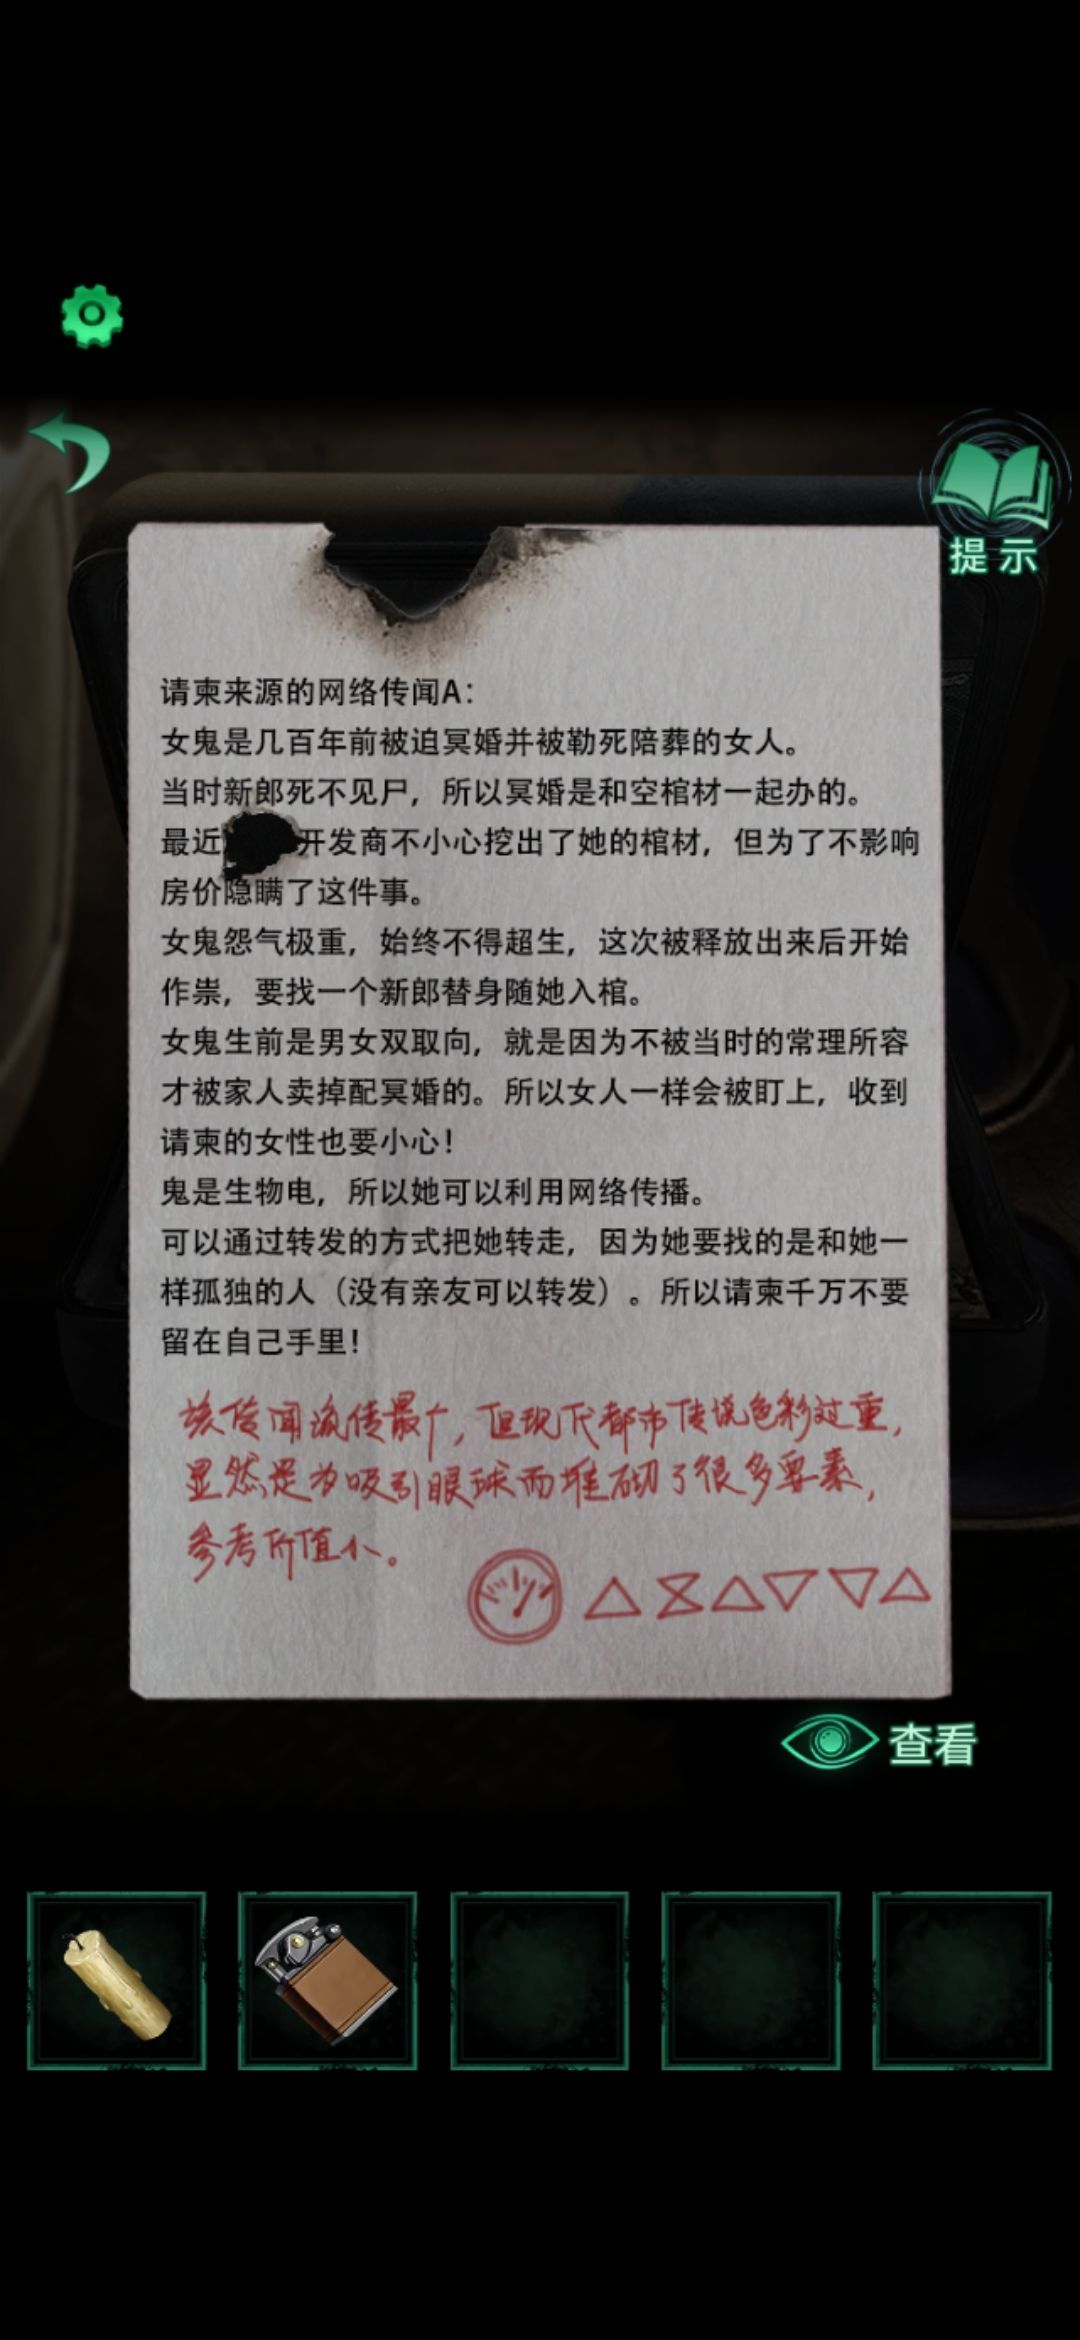 提示
请柬来源的网络传闻A：
女鬼是几百年前被迫冥婚并被勒死陪葬的女人。
当时新郎死不见尸，所以冥婚是和空棺材一起办的。
最近开发商不小心挖出了她的棺材，但为了不影响
房价隐瞒了这件事。
女鬼怨气极重，始终不得超生，这次被释放出来后开始
作祟，要找一个新郎替身随她入棺。
女鬼生前是男女双取向，就是因为不被当时的常理所容
才被家人卖掉配冥婚的。所以女人一样会被盯上，收到
请柬的女性也要小心！
鬼是生物电，所以她可以利用网络传播。
可以通过转发的方式把她转走，因为她要找的是和她一
样孤独的人（没有亲友可以转发）。所以请柬千万不要
留在自己手里！
该传闻流传最广，但现代都市传说色彩过重，
显然是为吸引眼球而堆砌了很多要素，
参考价值小。
查看